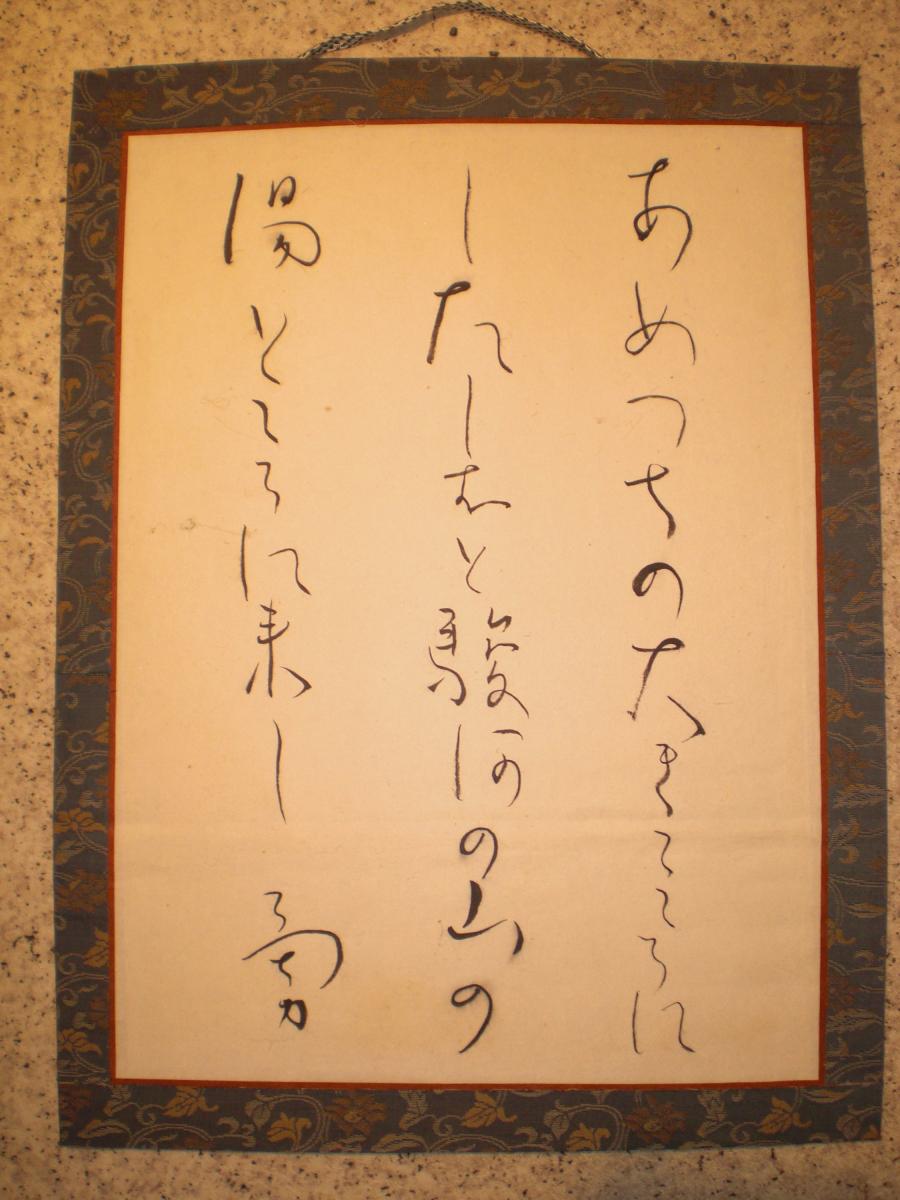 あめつちの大きこころに
したしむと駿河の山の
湯ところに来し 勇